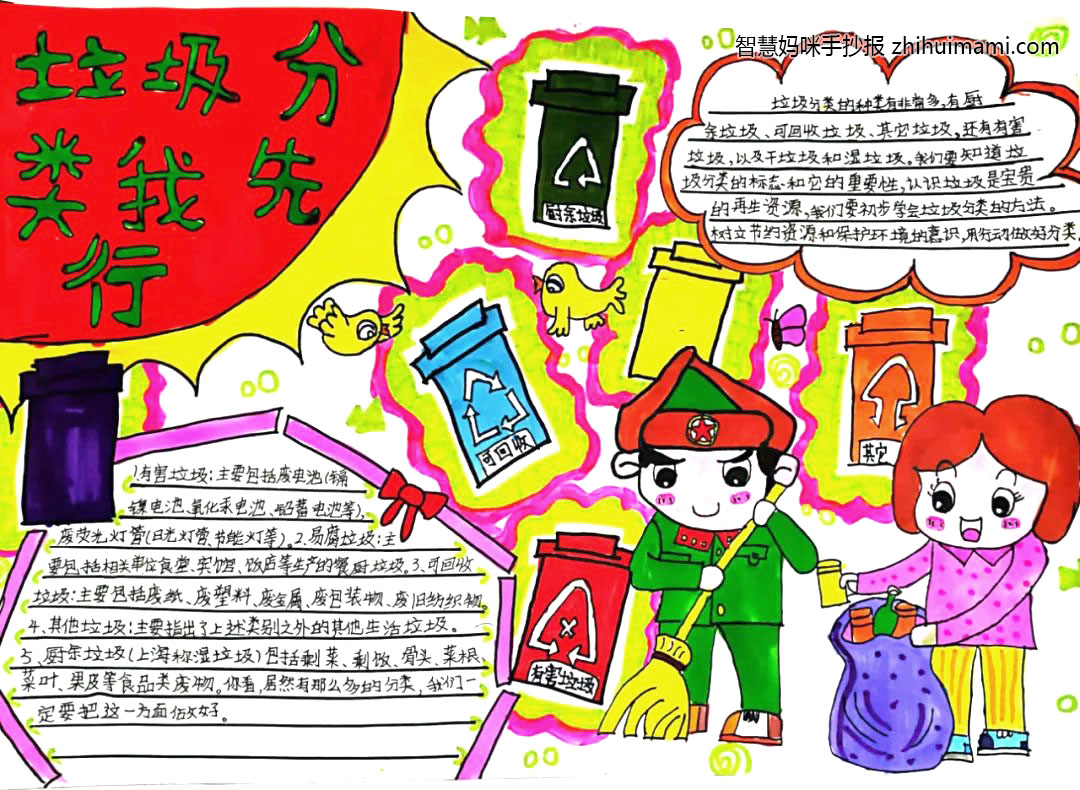 垃圾分
类我先
行
智慧妈咪手抄报 zhihuimami.com
垃圾分类的种类有非常多,有厨
余垃圾、可回收垃圾、其它垃圾,还有有害
垃圾,以及干垃圾和湿垃圾。我们要知道垃
圾分类的标志和它的重要性,认识垃圾是宝贵
的再生资源,我们要初步学会垃圾分类的方法。
树立节约资源和保护环境的意识,用行动做好分类。
厨余垃圾
可回收
其它
有害垃圾
1.有害垃圾:主要包括废电池(镉
镍电池、氧化汞电池、铅蓄电池等),
废荧光灯管(日光灯管、节能灯等)。2、易腐垃圾:主
要包括相关单位食堂、宾馆、饭店等生产的餐厨垃圾。3、可回收
垃圾:主要包括废纸、废塑料、废金属、废包装物、废旧纺织物。
4、其他垃圾:主要指出了上述类别之外的其他生活垃圾。
5、厨余垃圾(上海称湿垃圾)包括剩菜、剩饭、骨头、菜根、
菜叶、果皮等食品类废物。你看,居然有那么多的分类,我们一
定要把这一方面做好。